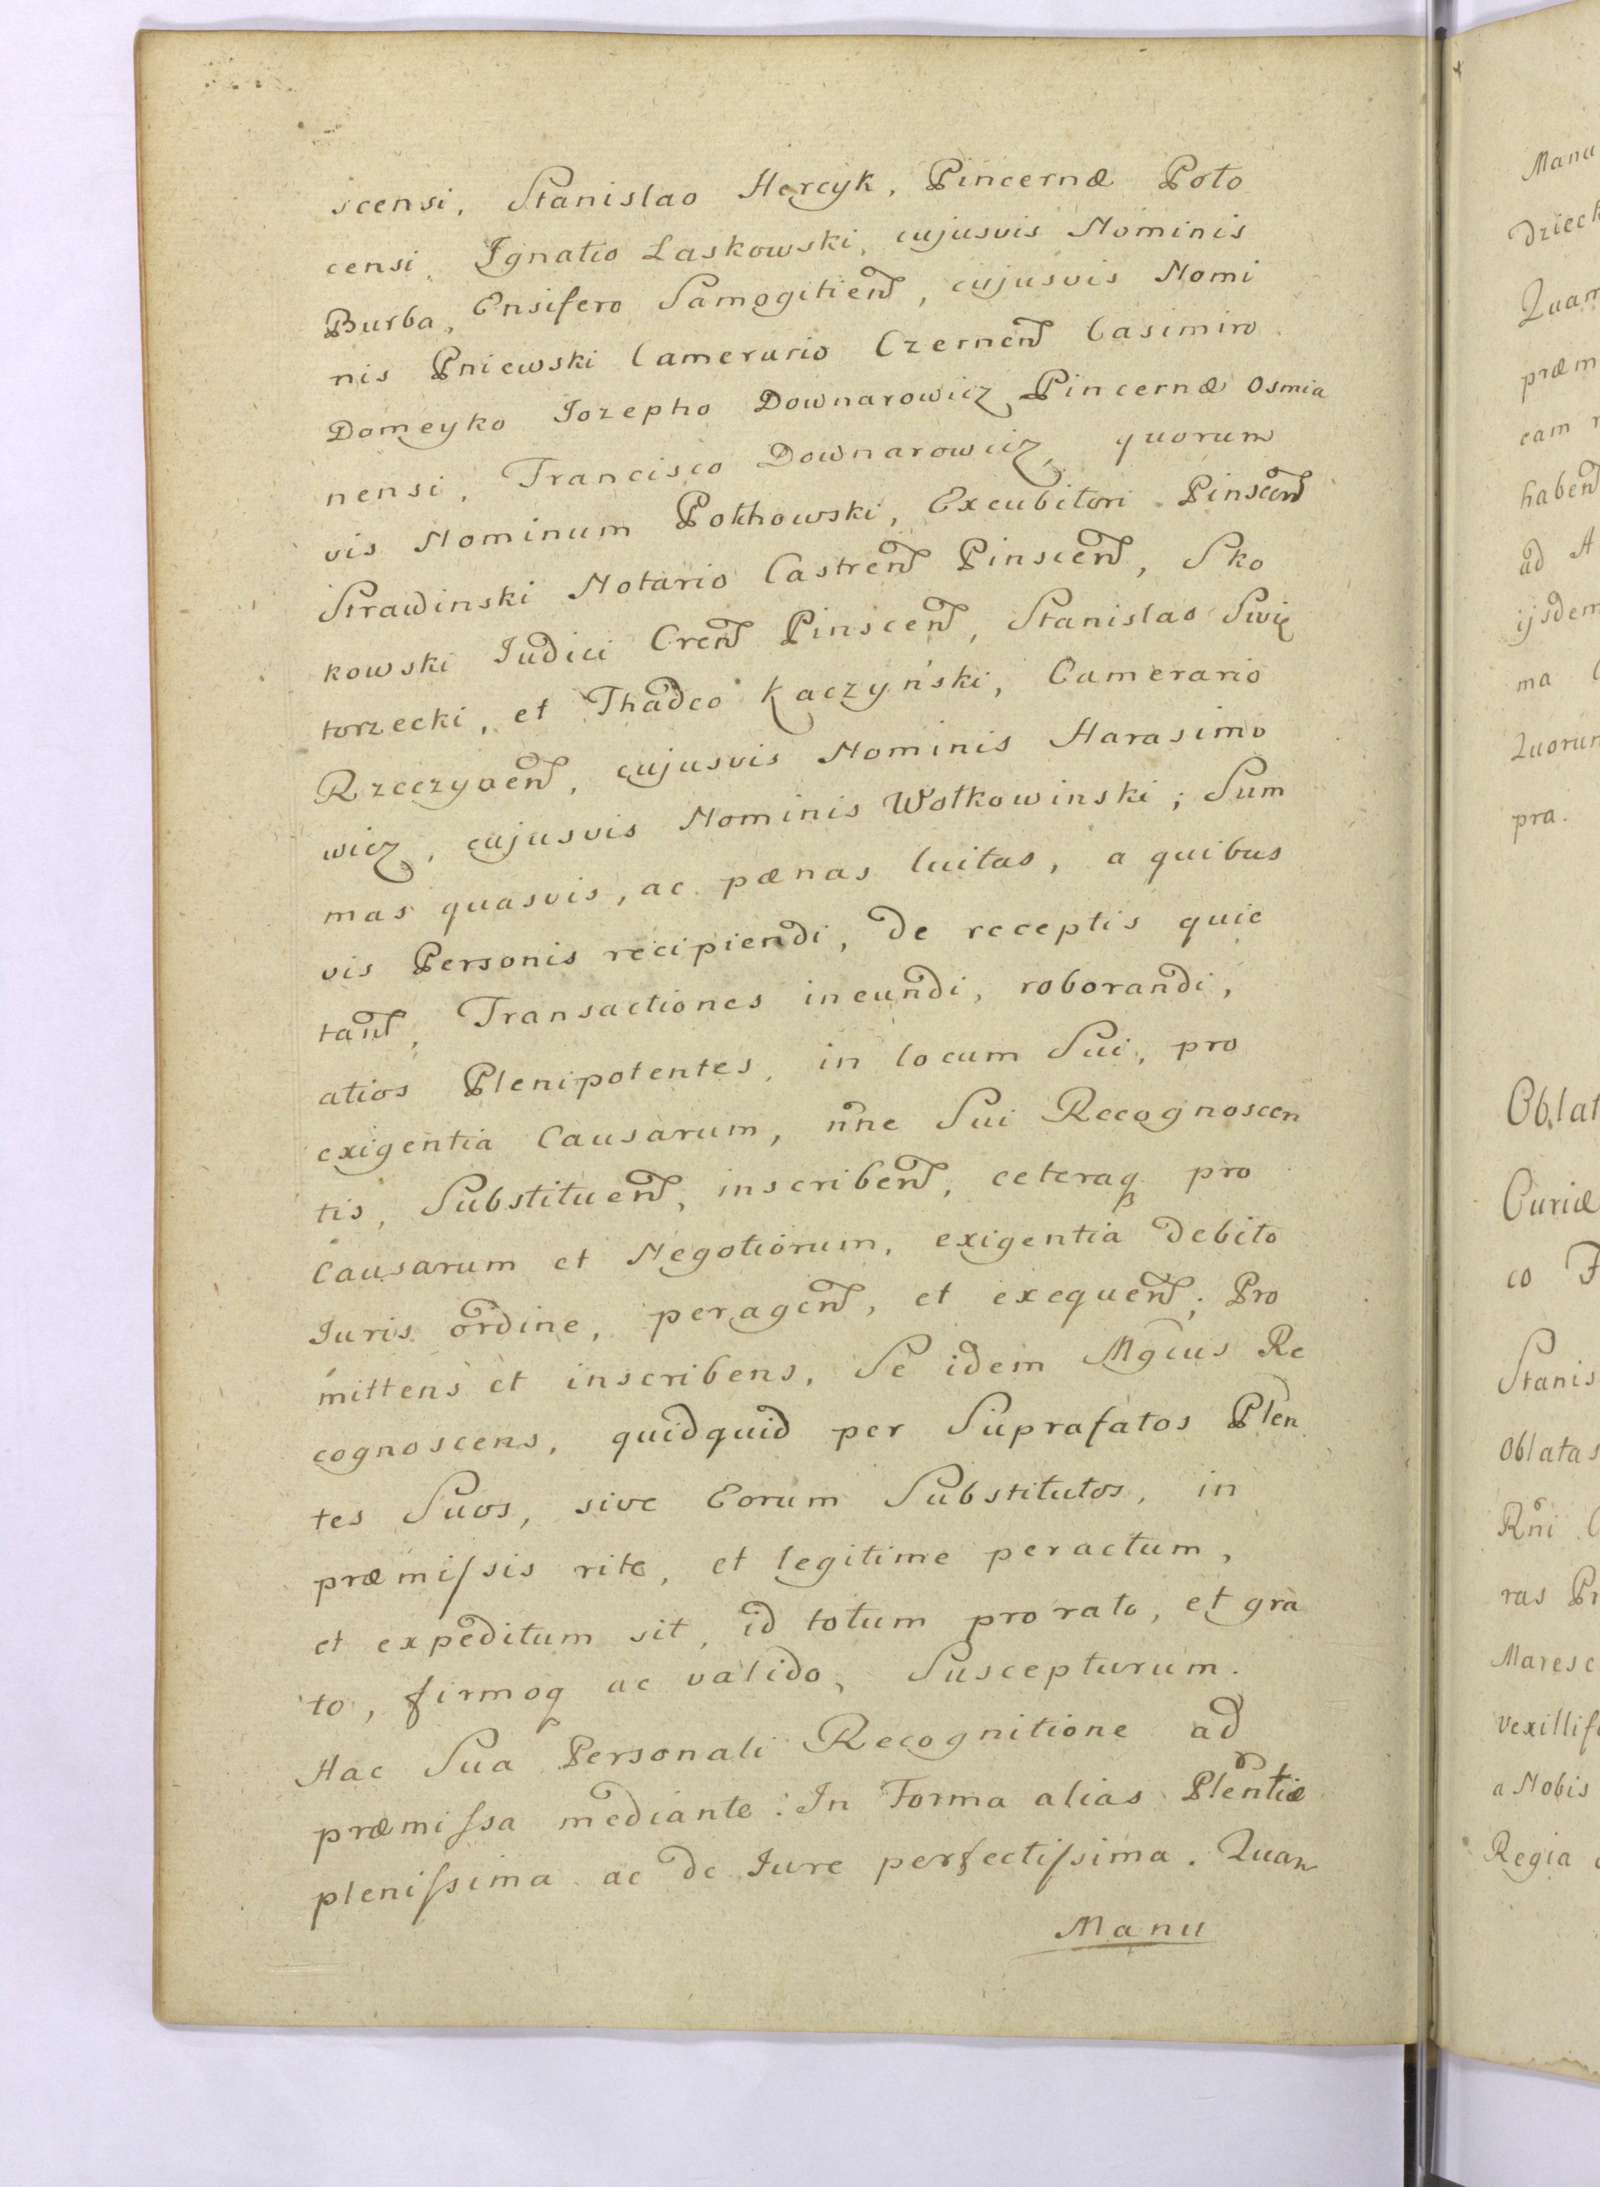 scensi, Stanislao Hercyk, Pincernæ Poto
censi, Ignatio Laskowski, cujusvis Nominis
Burba, Ensifero Samogitien, cujusvis Nomi
nis Pniewski Camerario Czernen Casimiro
Domeyko Iozepho Downarowicz Pincernæ Osmia
nensi, Francisco Downarowicz, quorum
vis Nominum Połhowski, Excubitori Pinscen
Strawinski Notario Castren Pinscen, Sko
kowski Iudici Cren Pinscen, Stanislao Swię
torzecki, et Thadeo Kaczyński, Camerario
Rzeczycen, cujusvis Nominis Harasimo
wicz, cujusvis Nominis Wołkowinski; Sum
mas quasvis, ac pænas luitas, a quibus
vis Personis recipiendi, de receptis quie
tan, Transactiones ineundi, roborandi,
atios Plenipotentes, in locum Sui, pro
exigentia Causarum, nne Sui Recognoscen
tis, Substituen, inscriben, ceteraq pro
Causarum et Negotiorum, exigentia debito
Iuris ordine, peragen, et exequen; Pro
mittens et inscribens, Se idem Mgcus Re
cognoscens, quidquid per Suprafatos Plen
tes Suos, sive Eorum Substitutos, in
præmissis rite, et legitime peractum,
et expeditum sit, id totum pro rato, et gra
to, firmoq ac valido, Suscepturum.
Hac Sua Personali Recognitione ad
præmissa mediante: In Forma alias Plentiæ
plenissima ac de Iure perfectissima. Quam
Manu
Manu
dzieck
Quam
præm
eam
haben
ad A
ijsdem
ma
Quorum
pra.
Oblat
Curiæ
co
Stanis
Oblatas
Rni
ras Pr
Maresc
Vexillif
a Nobis
Regia